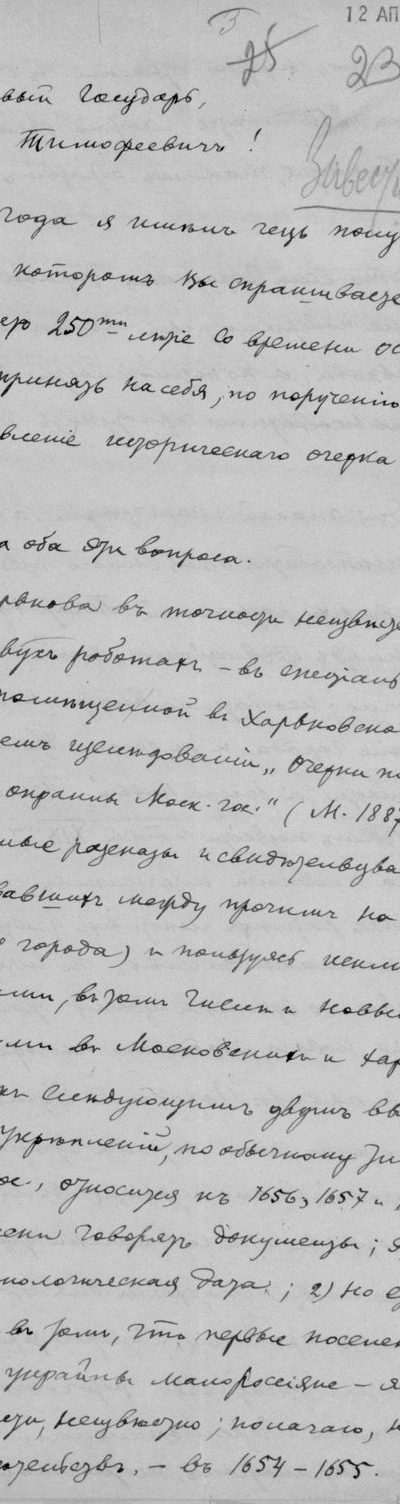 12 АП
25
23
вый Государь,
Тимофеевичъ!
года я имѣлъ честь полу
которомъ Вы спрашивает
250ти лѣтіе со времени ос
принять на себя, по порученію
вленіе историческаго очерка
а оба эти вопроса.
рькова въ точности неизвѣст
вухъ работахъ – въ спеціаль
помѣщенной въ Харьковско
емъ изслѣдованіи „Очерки из
окраины Моск. гос." (М. 1887
ные разсказы и свидѣтельства
вавшихъ между прочимъ на
города) и пользуясь исклю
ми, въ томъ числѣ и новы
ми въ Московскихъ и Хар
слѣдующимъ двумъ вы
укрѣпленій, по обычному
ое, относится къ 1656, 1657 и
говорятъ документы; я
нологическая дата; 2) но е
въ томъ, что первые поселен
украйны малороссіяне – я
неизвѣстно; полагаю, н
– въ 1654 – 1655.